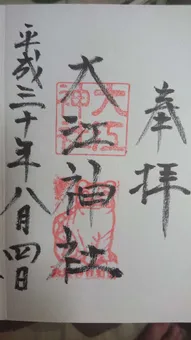 奉拝
大江神社
大江神社
平成三十年八月四日